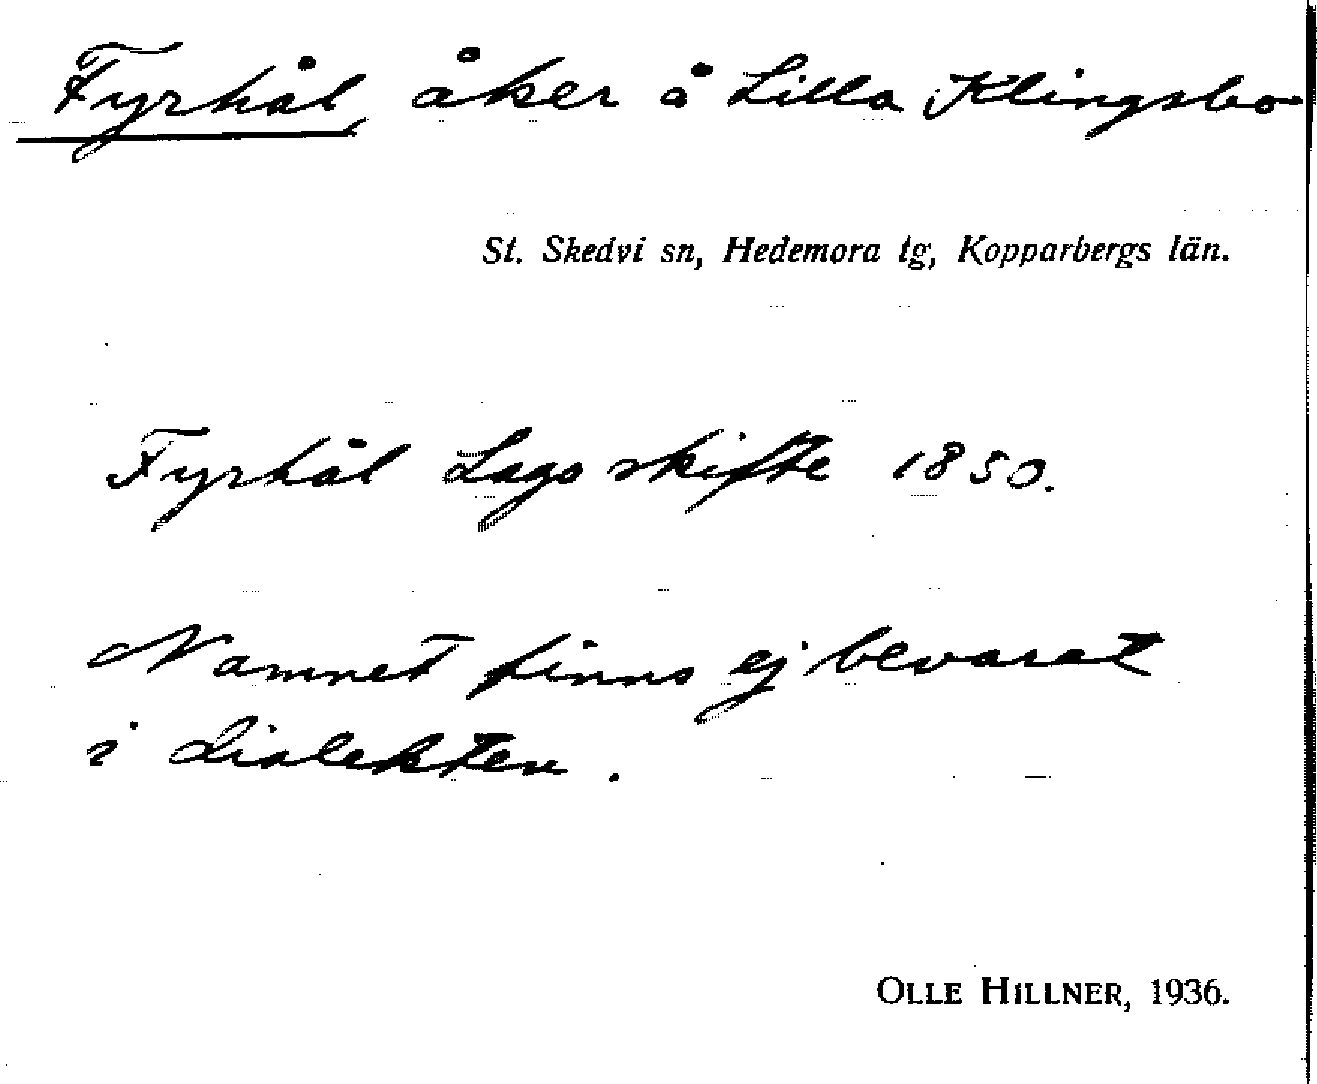 Fyrhål, åker å Lilla Klingsbo
St. Skedvi sn, Hedemora tg, Kopparbergs län.
Fyrhål Laga skifte 1850.
Namnet finns ej bevarat
i dialekten.
OLLE HILLNER, 1936.